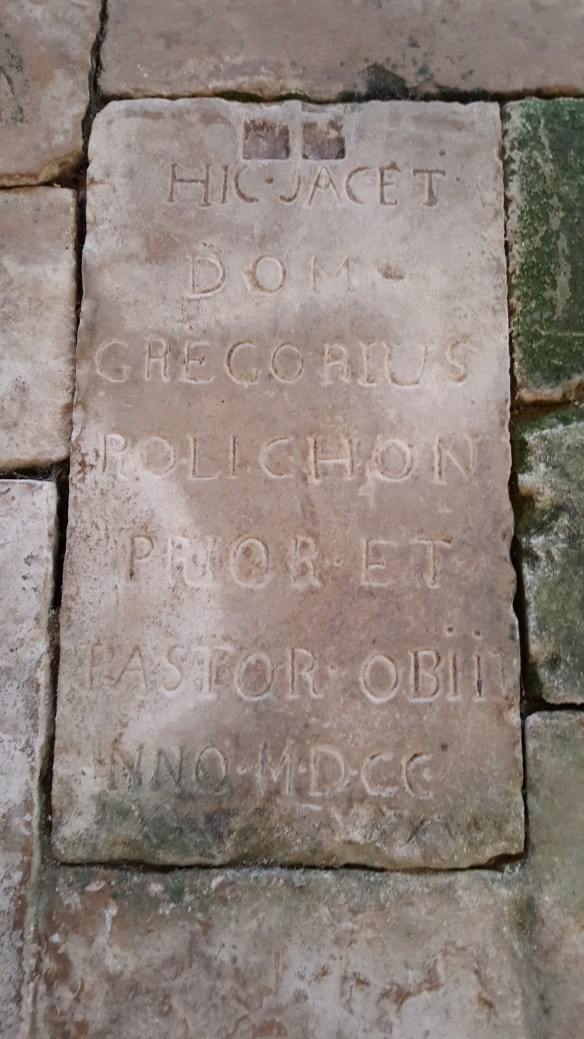 HIC·JACET·
DOM·
GREGORIUS
POLICHON
PRIOR·ET·
PASTOR·OBIIT
ANNO·M·D·CC·